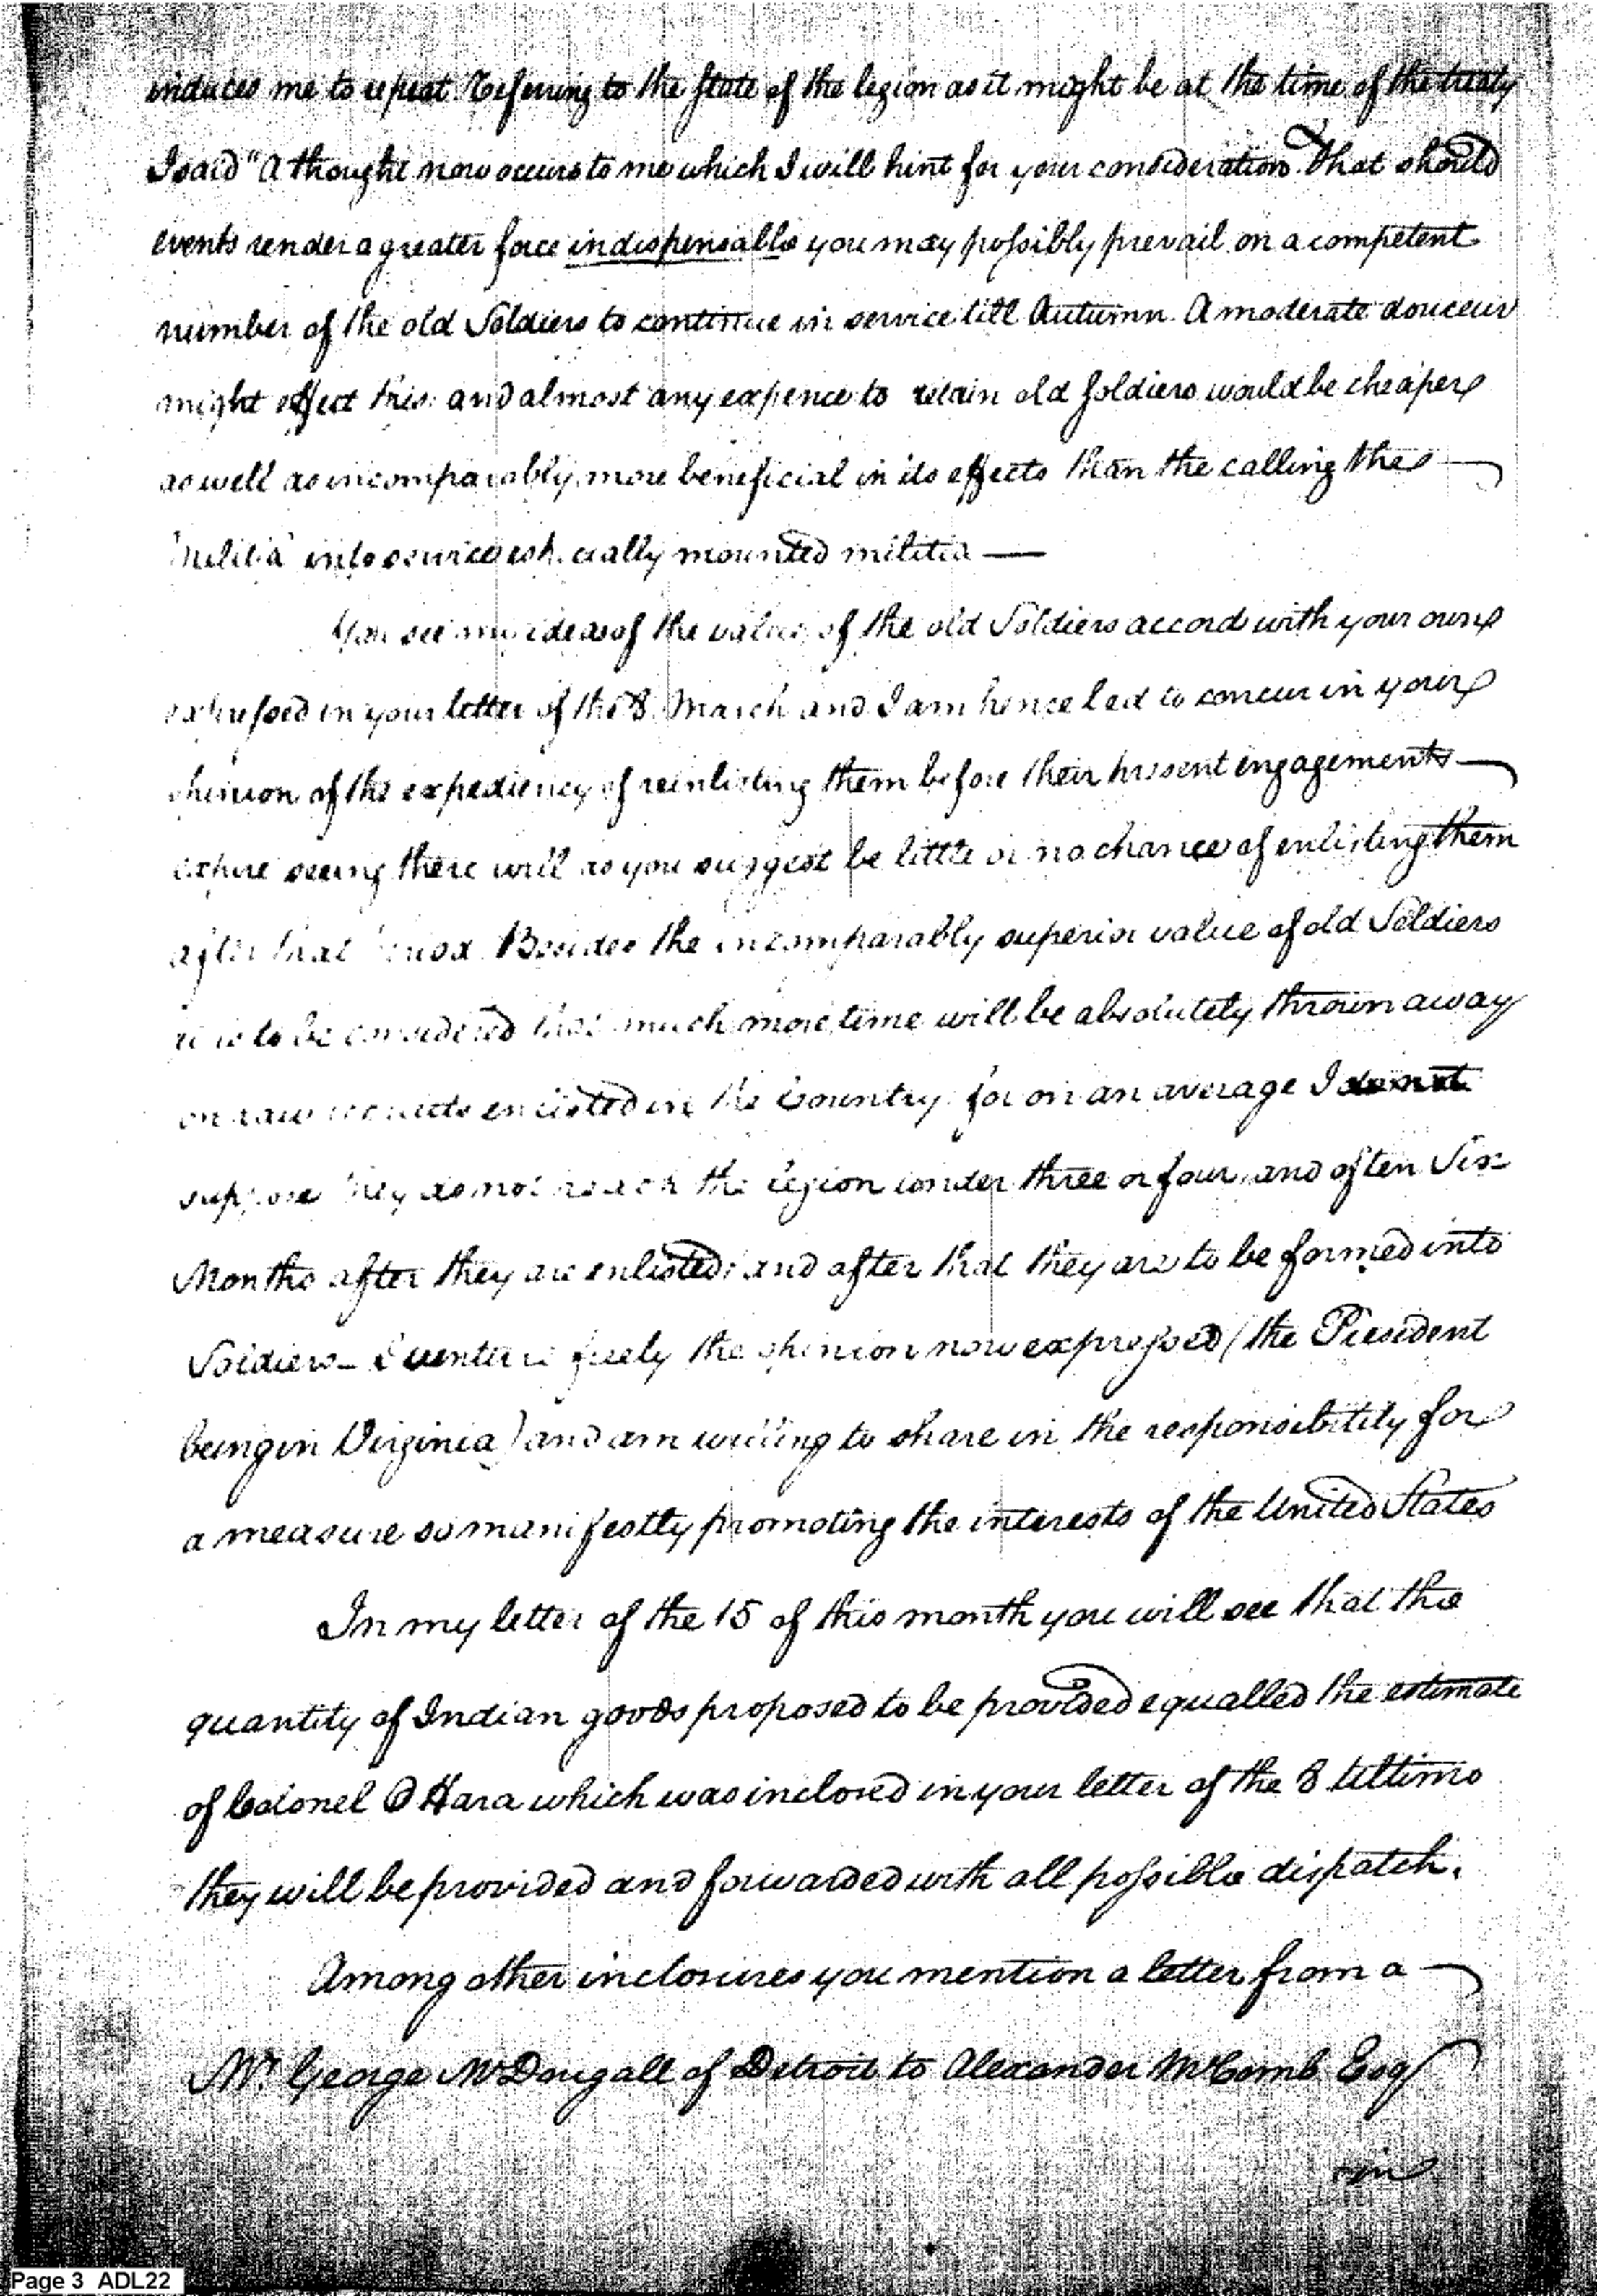 induces me to repeat. Referring to the state of the legion as it might be at the time of the treaty
I said "A thought now occurs to me which I will hint for your consideration. That should
events render a greater force indispensable you may possibly prevail on a competent
number of the old Soldiers to continue in service till Autumn. A moderate douceur
might effect this: and almost any expence to retain old soldiers would be cheaper
as well as incomparably more beneficial in its effects than the calling the
Militia into service especially mounted militia —
You see my ideas of the value of the old Soldiers accord with your own
expressed in your letter of the 8. March and I am hence led to concur in your
opinion of the expediency of reinlisting them before their present engagements
expire seeing there will as you suggest be little or no chance of enlisting them
after that period. Besides the incomparably superior value of old Soldiers
it is to be considered that much more time will be absolutely thrown away
on raw recruits enlisted in the Country for on an average I
suppose they do not reach the legion under three or four, and often Six
Months after they are enlisted; and after that they are to be formed into
Soldiers — I venture freely the opinion now expressed (the President
being in Virginia) and am willing to share in the responsibility for
a measure so manifestly promoting the interests of the United States
In my letter of the 15 of this month you will see that the
quantity of Indian goods proposed to be provided equalled the estimate
of Colonel O Hara which was inclosed in your letter of the 8 ultimo
they will be provided and forwarded with all possible dispatch.
Among other inclosures you mention a letter from a
Mr. George McDougall of Detroit to Alexander McComb Esq
in
Page 3 ADL22